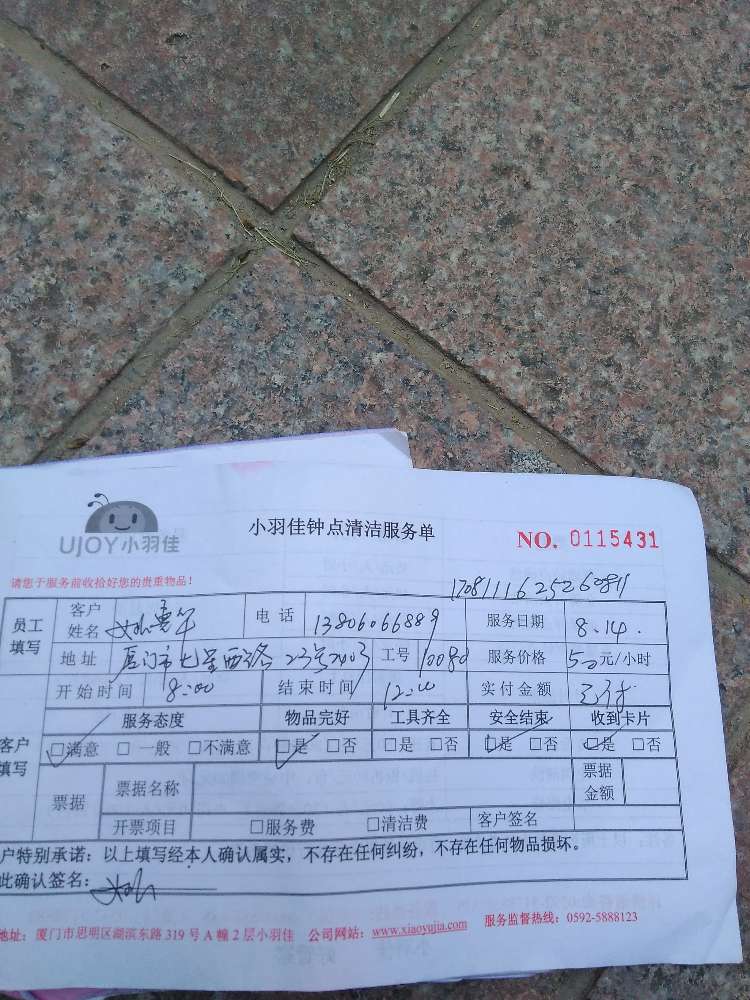 UJOY小羽佳
小羽佳钟点清洁服务单
NO. 0115431
请您于服务前收拾好您的贵重物品！
员工填写
客户姓名 电话 13806066889 服务日期 8.14.
地址 厦门市七星西路23号 工号 服务价格 50元/小时
开始时间 8:00 结束时间 12:00 实付金额 已付
客户填写
服务态度 物品完好 工具齐全 安全结束 收到卡片
□满意 □一般 □不满意 □是 □否 □是 □否 □是 □否 □是 □否
票据 票据名称 票据金额
开票项目 □服务费 □清洁费 客户签名
户特别承诺：以上填写经本人确认属实，不存在任何纠纷，不存在任何物品损坏。
此确认签名：
地址：厦门市思明区湖滨东路319号A幢2层小羽佳 公司网站：www.xiaoyujia.com 服务监督热线：0592-5888123